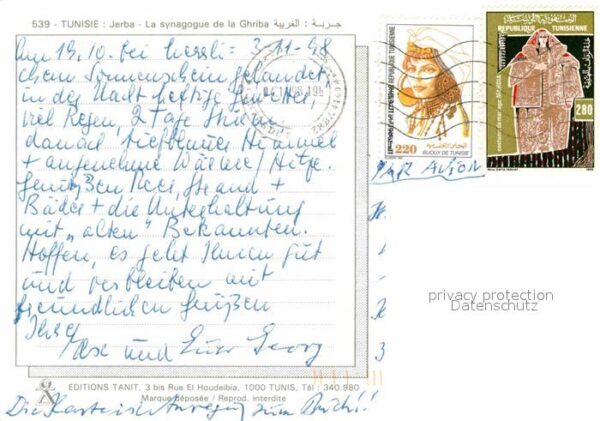 539 - TUNISIE : Jerba - La synagogue de la Ghriba جربة : الغريبة
Am 19.10. bei herrli= 3-11-98
chem Sonnenschein gelandet,
in der Nacht heftige Gewitter,
viel Regen, 2 Tage Sturm
danach tiefblauer Himmel
+ angenehme Wärme/Hitze.
Genießen Meer, Strand +
Bäder + die Unterhaltung
mit "alten" Bekannten.
Hoffen, es geht Ihnen gut
und verbleiben mit
freundlichen Grüßen
Ihre
und Georg
REPUBLIQUE TUNISIENNE
220
BIJOUX DE TUNISIE
REPUBLIQUE TUNISIENNE
280
PAR AVION
privacy protection
Datenschutz
EDITIONS TANIT, 3 bis Rue El Houdeibia, 1000 TUNIS, Tél : 340.980
Marque déposée / Reprod. interdite
Die Karte ist Anregung zum Buch!!